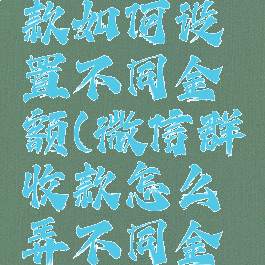 款如何设
置不同金
额(微信群
收款怎么
弄不同金